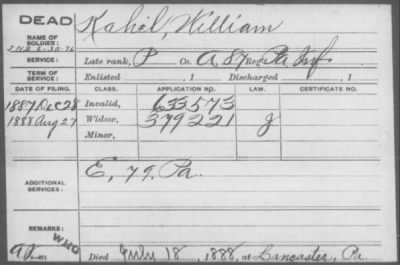 DEAD
NAME OF SOLDIER: Kahil, William
SERVICE: Late rank, P Co. A, 87 Reg't Pa Inf.
TERM OF SERVICE: Enlisted , 1 Discharged , 1
DATE OF FILING. CLASS. APPLICATION NO. LAW. CERTIFICATE NO.
1887 Dec 28 Invalid, 633573
1888 Aug 27 Widow, 379221 J
Minor,
ADDITIONAL SERVICES: E, 79, Pa.
REMARKS: WHO
Died July 18, 1888, at Lancaster, Pa.